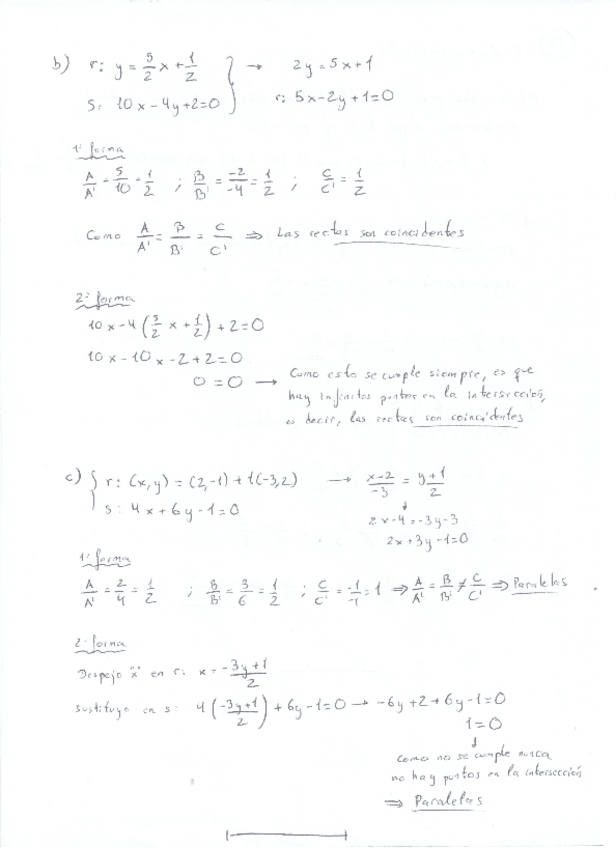 b) r: y = 5/2 x + 1/2 } → 2y = 5x + 1
s: 10x - 4y + 2 = 0 r: 5x - 2y + 1 = 0
1ª forma
A/A' = 5/10 = 1/2 ; B/B' = -2/-4 = 1/2 ; C/C' = 1/2
Como A/A' = B/B' = C/C' ⇒ Las rectas son coincidentes
2ª forma
10x - 4(5/2 x + 1/2) + 2 = 0
10x - 10x - 2 + 2 = 0
0 = 0 → Como esto se cumple siempre, es que
hay infinitos puntos en la intersección,
es decir, las rectas son coincidentes
c) { r: (x,y) = (2,-1) + t(-3,2) → x-2/-3 = y+1/2
s: 4x + 6y - 1 = 0
↓
2x - 4 = -3y - 3
2x + 3y - 1 = 0
1ª forma
A/A' = 2/4 = 1/2 ; B/B' = 3/6 = 1/2 ; C/C' = -1/-1 = 1 ⇒ A/A' = B/B' ≠ C/C' ⇒ Paralelas
2ª forma
Despejo "x" en r: x = -3y+1/2
Sustituyo en s: 4(-3y+1/2) + 6y - 1 = 0 → -6y + 2 + 6y - 1 = 0
1 = 0
↓
Como no se cumple nunca
no hay puntos en la intersección
⇒ Paralelas